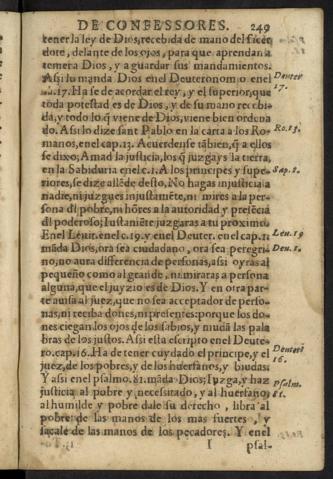 DE CONFESSORES. 249
tener la ley de Dios, recebida de mano del sacer
dote, delante de los ojos, para que aprendan a
temer a Dios, y a guardar sus mandamientos.
Assi lo manda Dios en el Deuteronomio en el
ca. 17. Ha se de acordar el rey, y el superior, que
toda potestad es de Dios, y de su mano recebi-
da, y todo lo q̃ viene de Dios, viene bien ordena
do. Assi lo dize sant Pablo en la carta a los Ro-
manos, en el cap. 13. Acuerdense tãbien, q̃ a ellos
se dixo; Amad la justicia, los q̃ juzgays la tierra,
en la Sabiduria en el c. 1. A los principes y supe-
riores, se dize allẽde desto, No hagas injusticia a
nadie, ni juzgues injustamẽte, ni mires a la per-
sona dl pobre, ni hõres a la autoridad y presẽcia
dl poderoso; Iustamẽte juzgaras a tu proximo.
En el Leuit. en el c. 19. y en el Deuter. en el cap. 1.
mãda Dios, ora sea ciudadano, ora sea peregri-
no, no aura differẽcia de personas, assi oyras al
pequeño como al grande, ni miraras a persona
alguna, que el juyzio es de Dios. Y en otra par-
te auisa al juez, que no sea acceptador de perso-
nas, ni reciba dones, ni presentes: porque los do-
nes ciegan los ojos de los sabios, y mudã las pala
bras de los justos. Assi esta escripto en el Deute-
ro. cap. 16. Ha de tener cuydado el principe, y el
juez, de los pobres, y de los huerfanos, y biudas.
Y assi en el psalmo. 81. mãda Dios; Iuzga, y haz
justicia al pobre y necessitado, y al huerfano,
al humilde y pobre dale su derecho, libra al
pobre de las manos de los mas fuertes, y
sacale de las manos de los pecadores. Y en el
I psal-
Deuter
17.
Ro. 13.
Sap. 1.
Leu. 19
Deu. 1.
Deuter
16.
psalm.
81.